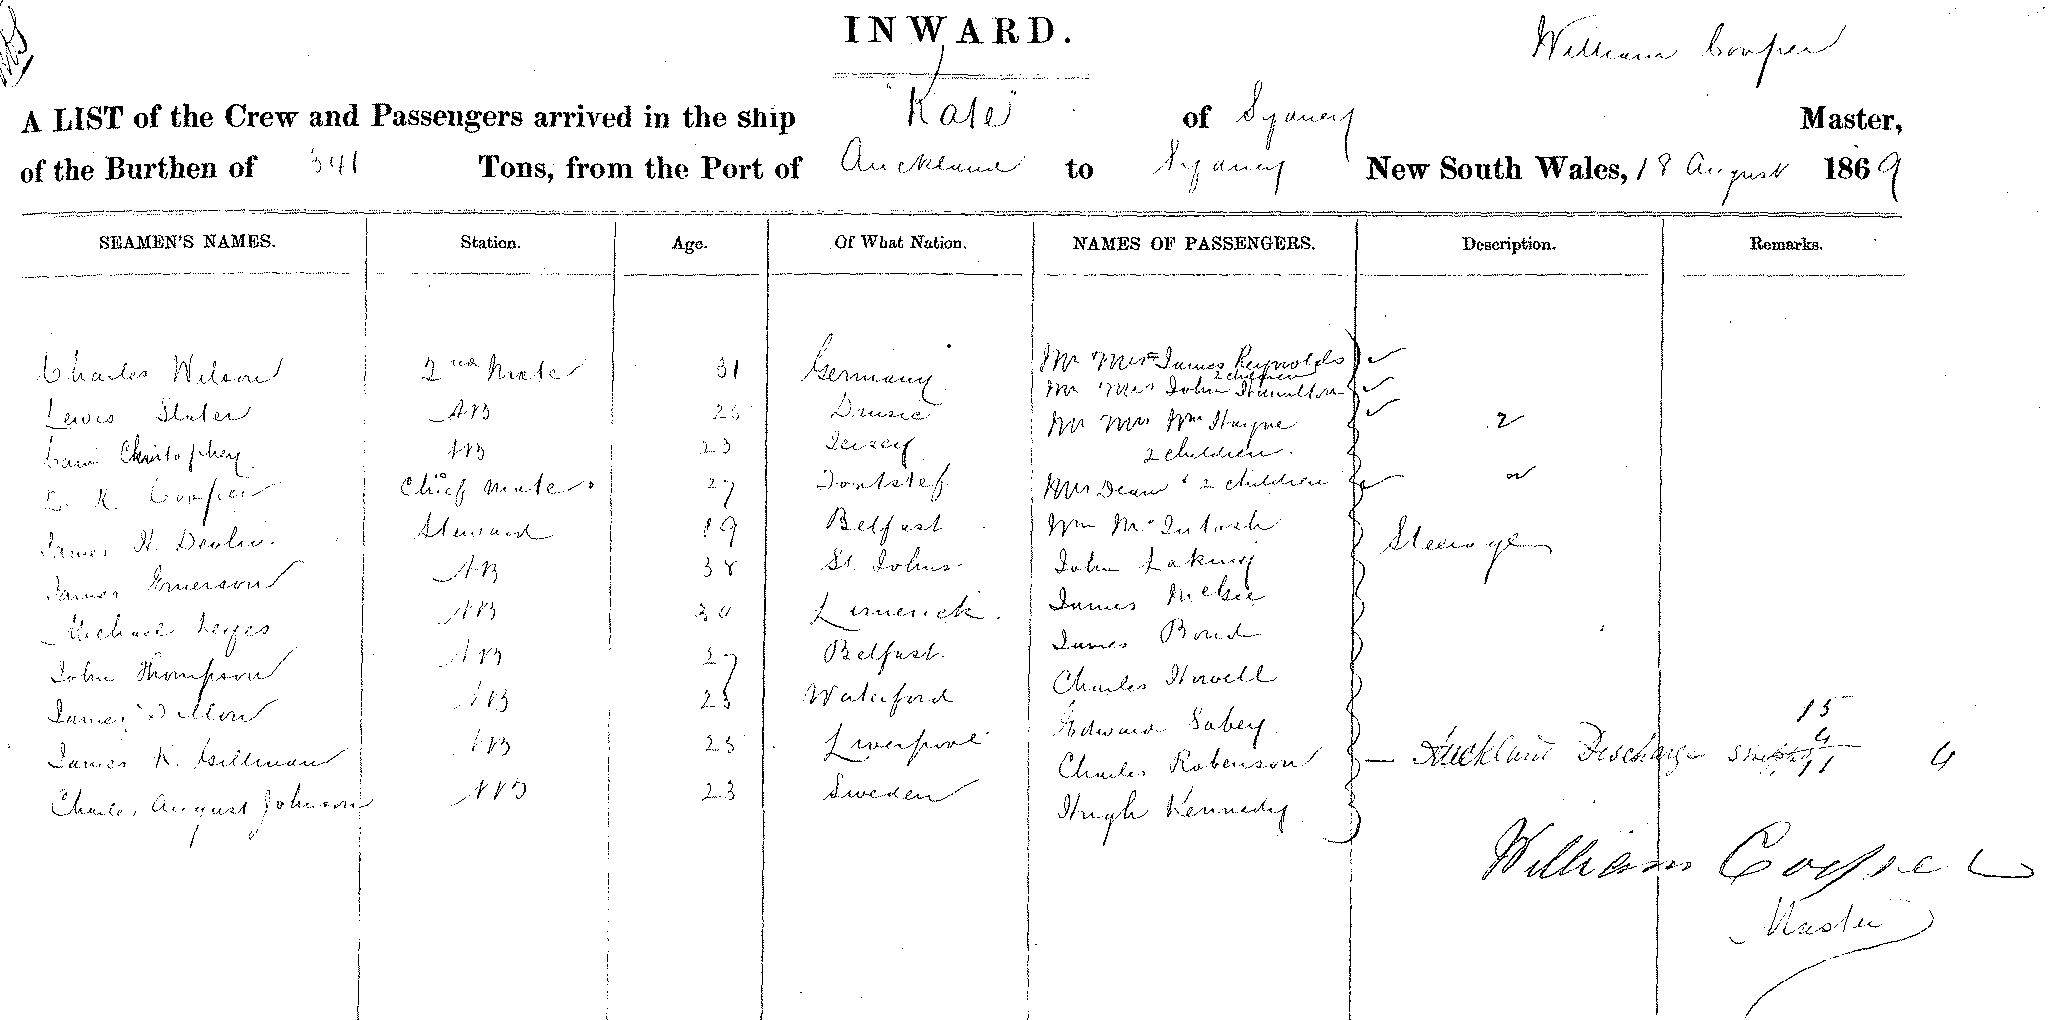 INWARD.
William Cooper
A LIST of the Crew and Passengers arrived in the ship "Kate" of Sydney Master,
of the Burthen of 341 Tons, from the Port of Auckland to Sydney New South Wales, 18 August 1869
SEAMEN'S NAMES. Station. Age. Of What Nation. NAMES OF PASSENGERS. Description. Remarks.
Charles Wilson 2nd Mate 31 Germany Mr Mrs James Reynolds
2 children
Mr Mrs John Hamilton
Lewis Slater AB 25 Mr Mrs Wm Hayne 2
Christopher AB 23 Jersey 2 children.
Cooper Chief Mate 27 Mrs Dean & 2 children
James H. Devlin Steward 19 Belfast Wm McIntosh Steerage
James Emerson AB 38 St. Johns John Laking
Michael AB 30 Limerick. James McGee
John Thompson AB 27 Belfast James Bond
James Dillon AB 25 Waterford Charles Howell
James K. Gillman AB 25 Liverpool Edward Sabey 15
4
Charles Robenson Auckland Discharge 11 4
Charles August Johnson AB 23 Sweden Hugh Kennedy
William Cooper
Master